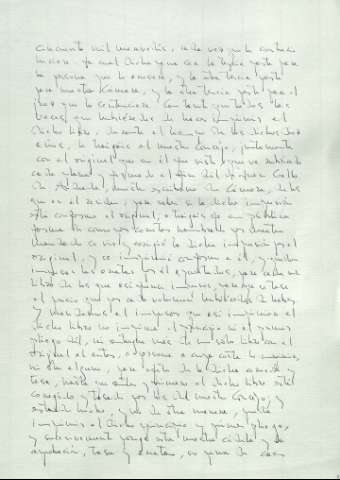 cincuenta mil maravedís, cada vez que lo contrario
hiciere. La cual dicha pena sea la tercia parte para
la persona que lo acusare, y la otra tercia parte
para nuestra Cámara, y la otra tercia parte para el
Juez que lo sentenciare. Con tanto que todas las
veces que hubiéredes de hacer imprimir el
dicho libro, durante el tiempo de los dichos diez
años, le traigáis al nuestro Consejo, juntamente
con el original que en él fue visto, que va rubricado
cada plana y firmado al fin del de
de nuestro escribano de Cámara, de los
que en él residen, para saber si la dicha impresión
está conforme el original, o traigáis fe en pública
forma de como por corretor nombrado por nuestro
mandado se vio y corrigió la dicha impresión por el
original, y se imprimió conforme a él, y quedan
impresas las erratas por él apuntadas, para cada un
libro de los que así fueren impresos, para que se tase
el precio que por cada volumen hubiéredes de haber.
Y mandamos al impresor que así imprimiere el
dicho libro no imprima el principio ni el primer
pliego dél, ni entregue más de un solo libro con el
original al autor, o persona a cuya costa lo imprimiere,
ni otro alguno, para efeto de la dicha correción y
tasa, hasta que antes y primero el dicho libro esté
corregido y tasado por los del nuestro Consejo, y
estando hecho, y no de otra manera, pueda
imprimir el dicho principio y primer pliego,
y sucesivamente ponga esta nuestra cédula y la
aprobación, tasa y erratas, so pena de caer